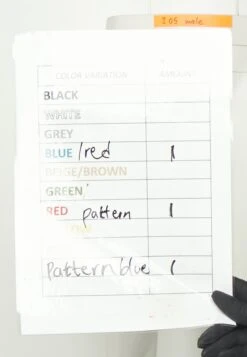 205 male
COLOR VARIATION AMOUNT
BLACK
WHITE
GREY
BLUE /red 1
BEIGE/BROWN
GREEN
RED pattern 1
Pattern blue 1